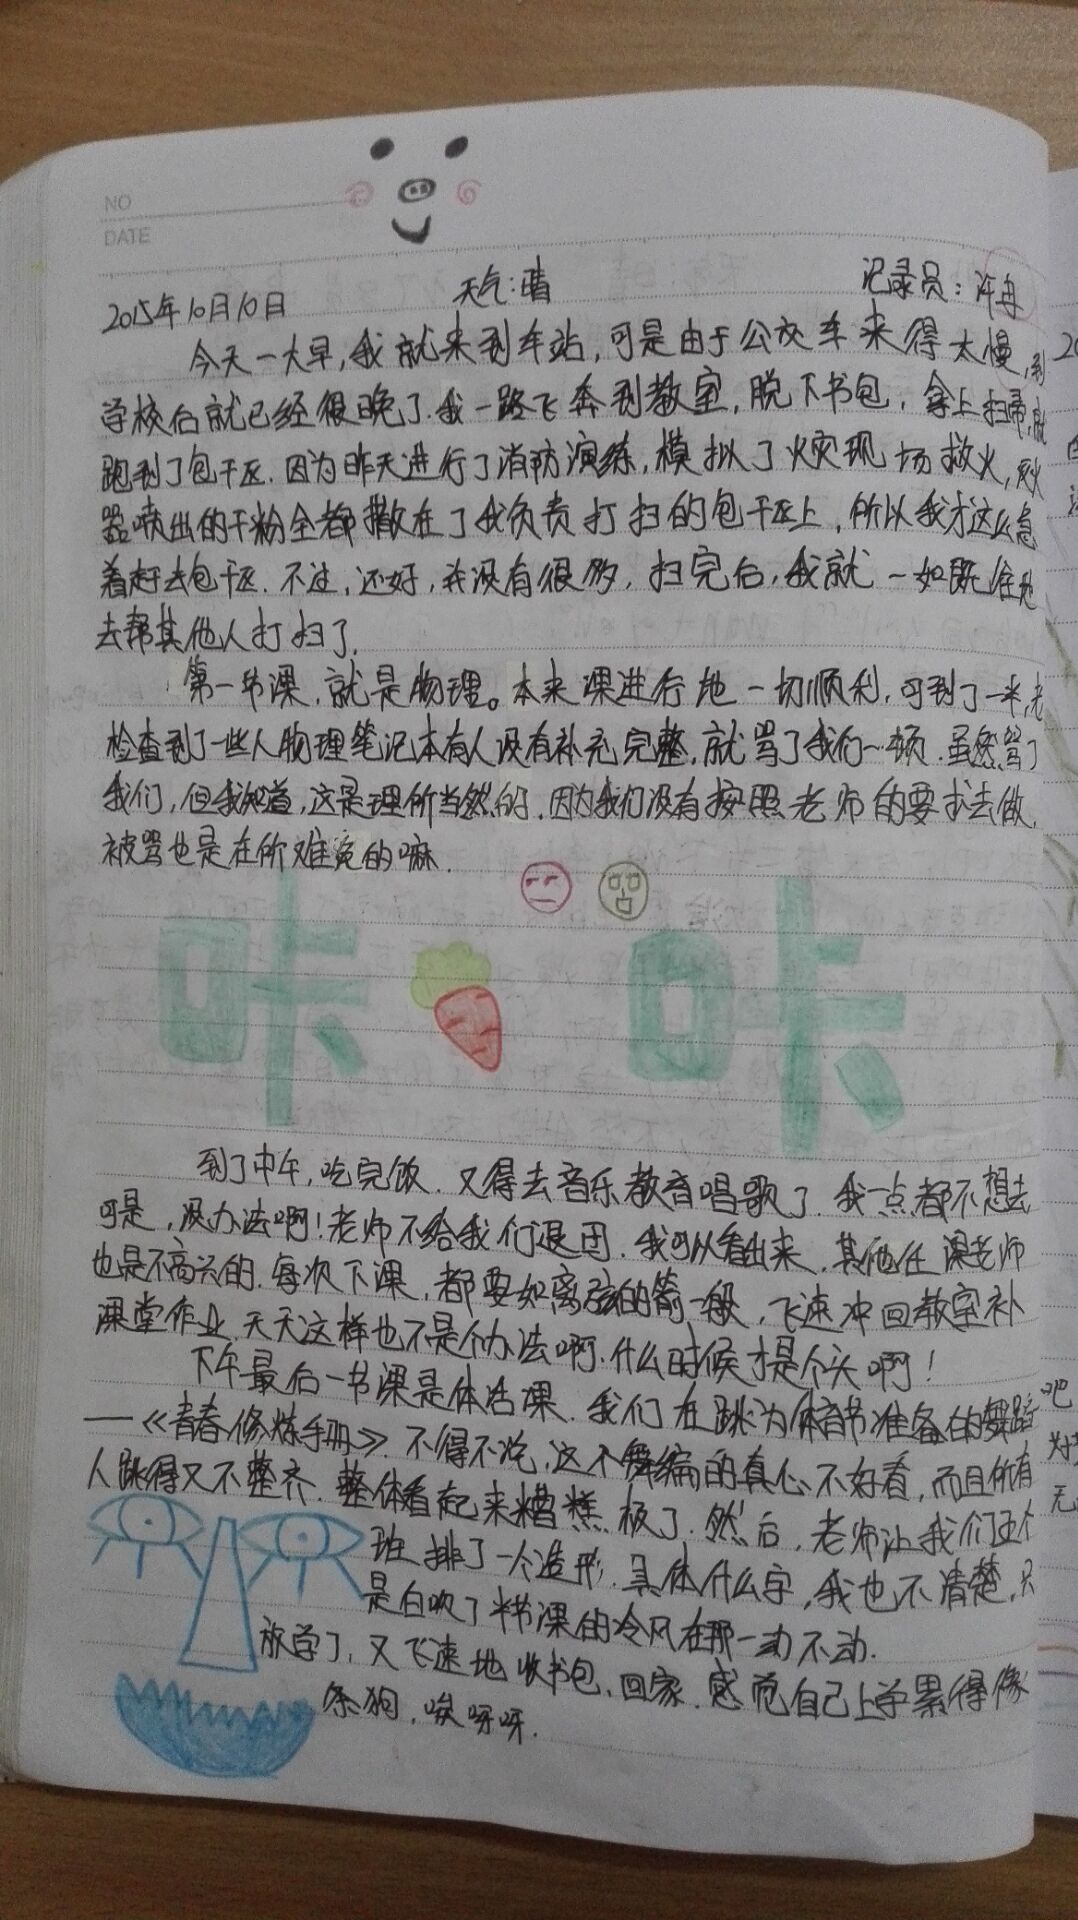 NO
DATE
2015年10月10日 天气:晴 记录员:许冉
今天一大早,我就来到车站,可是由于公交车来得太慢,到
学校后就已经很晚了.我一路飞奔到教室,脱下书包,拿上扫帚,就
跑到了包干区.因为昨天进行了消防演练,模拟了火灾现场救火,灭火
器喷出的干粉全都撒在了我负责打扫的包干区上,所以我才这么急
着赶去包干区.不过,还好,并没有很多,扫完后,我就一如既往地
去帮其他人打扫了.
第一节课,就是物理。本来课进行地一切顺利,可到了一半,老
检查到了一些人物理笔记本有人没有补充完整,就骂了我们一顿.虽然骂了
我们,但我知道,这是理所当然的.因为我们没有按照老师的要求去做,
被骂也是在所难免的嘛.
咔咔
到了中午,吃完饭.又得去音乐教育唱歌了.我一点都不想去
可是,没办法啊!老师不给我们退团.我可以看出来,其他任课老师
也是不高兴的.每次下课,都要如离弦的箭一般,飞速冲回教室补
课堂作业,天天这样也不是个办法啊.什么时候才是个头啊!
下午最后一书课是体活课.我们在跳为体育节准备的舞蹈
——《青春修炼手册》.不得不说,这个舞编的真心不好看,而且所有
人跳得又不整齐.整体看起来糟糕极了.然后,老师让我们五个
班排了一个造形.具体什么字,我也不清楚,只
是白吹了半节课的冷风在那一动不动.
放学了,又飞速地收书包,回家.感觉自己上学累得像
条狗,唉呀呀.